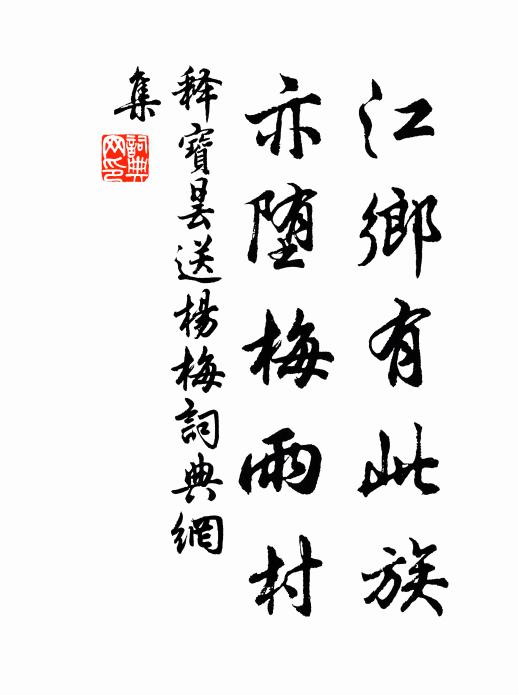 江鄉有此族
亦堕梅雨村
释寶昙送楊梅詞典網
集
詞典网印